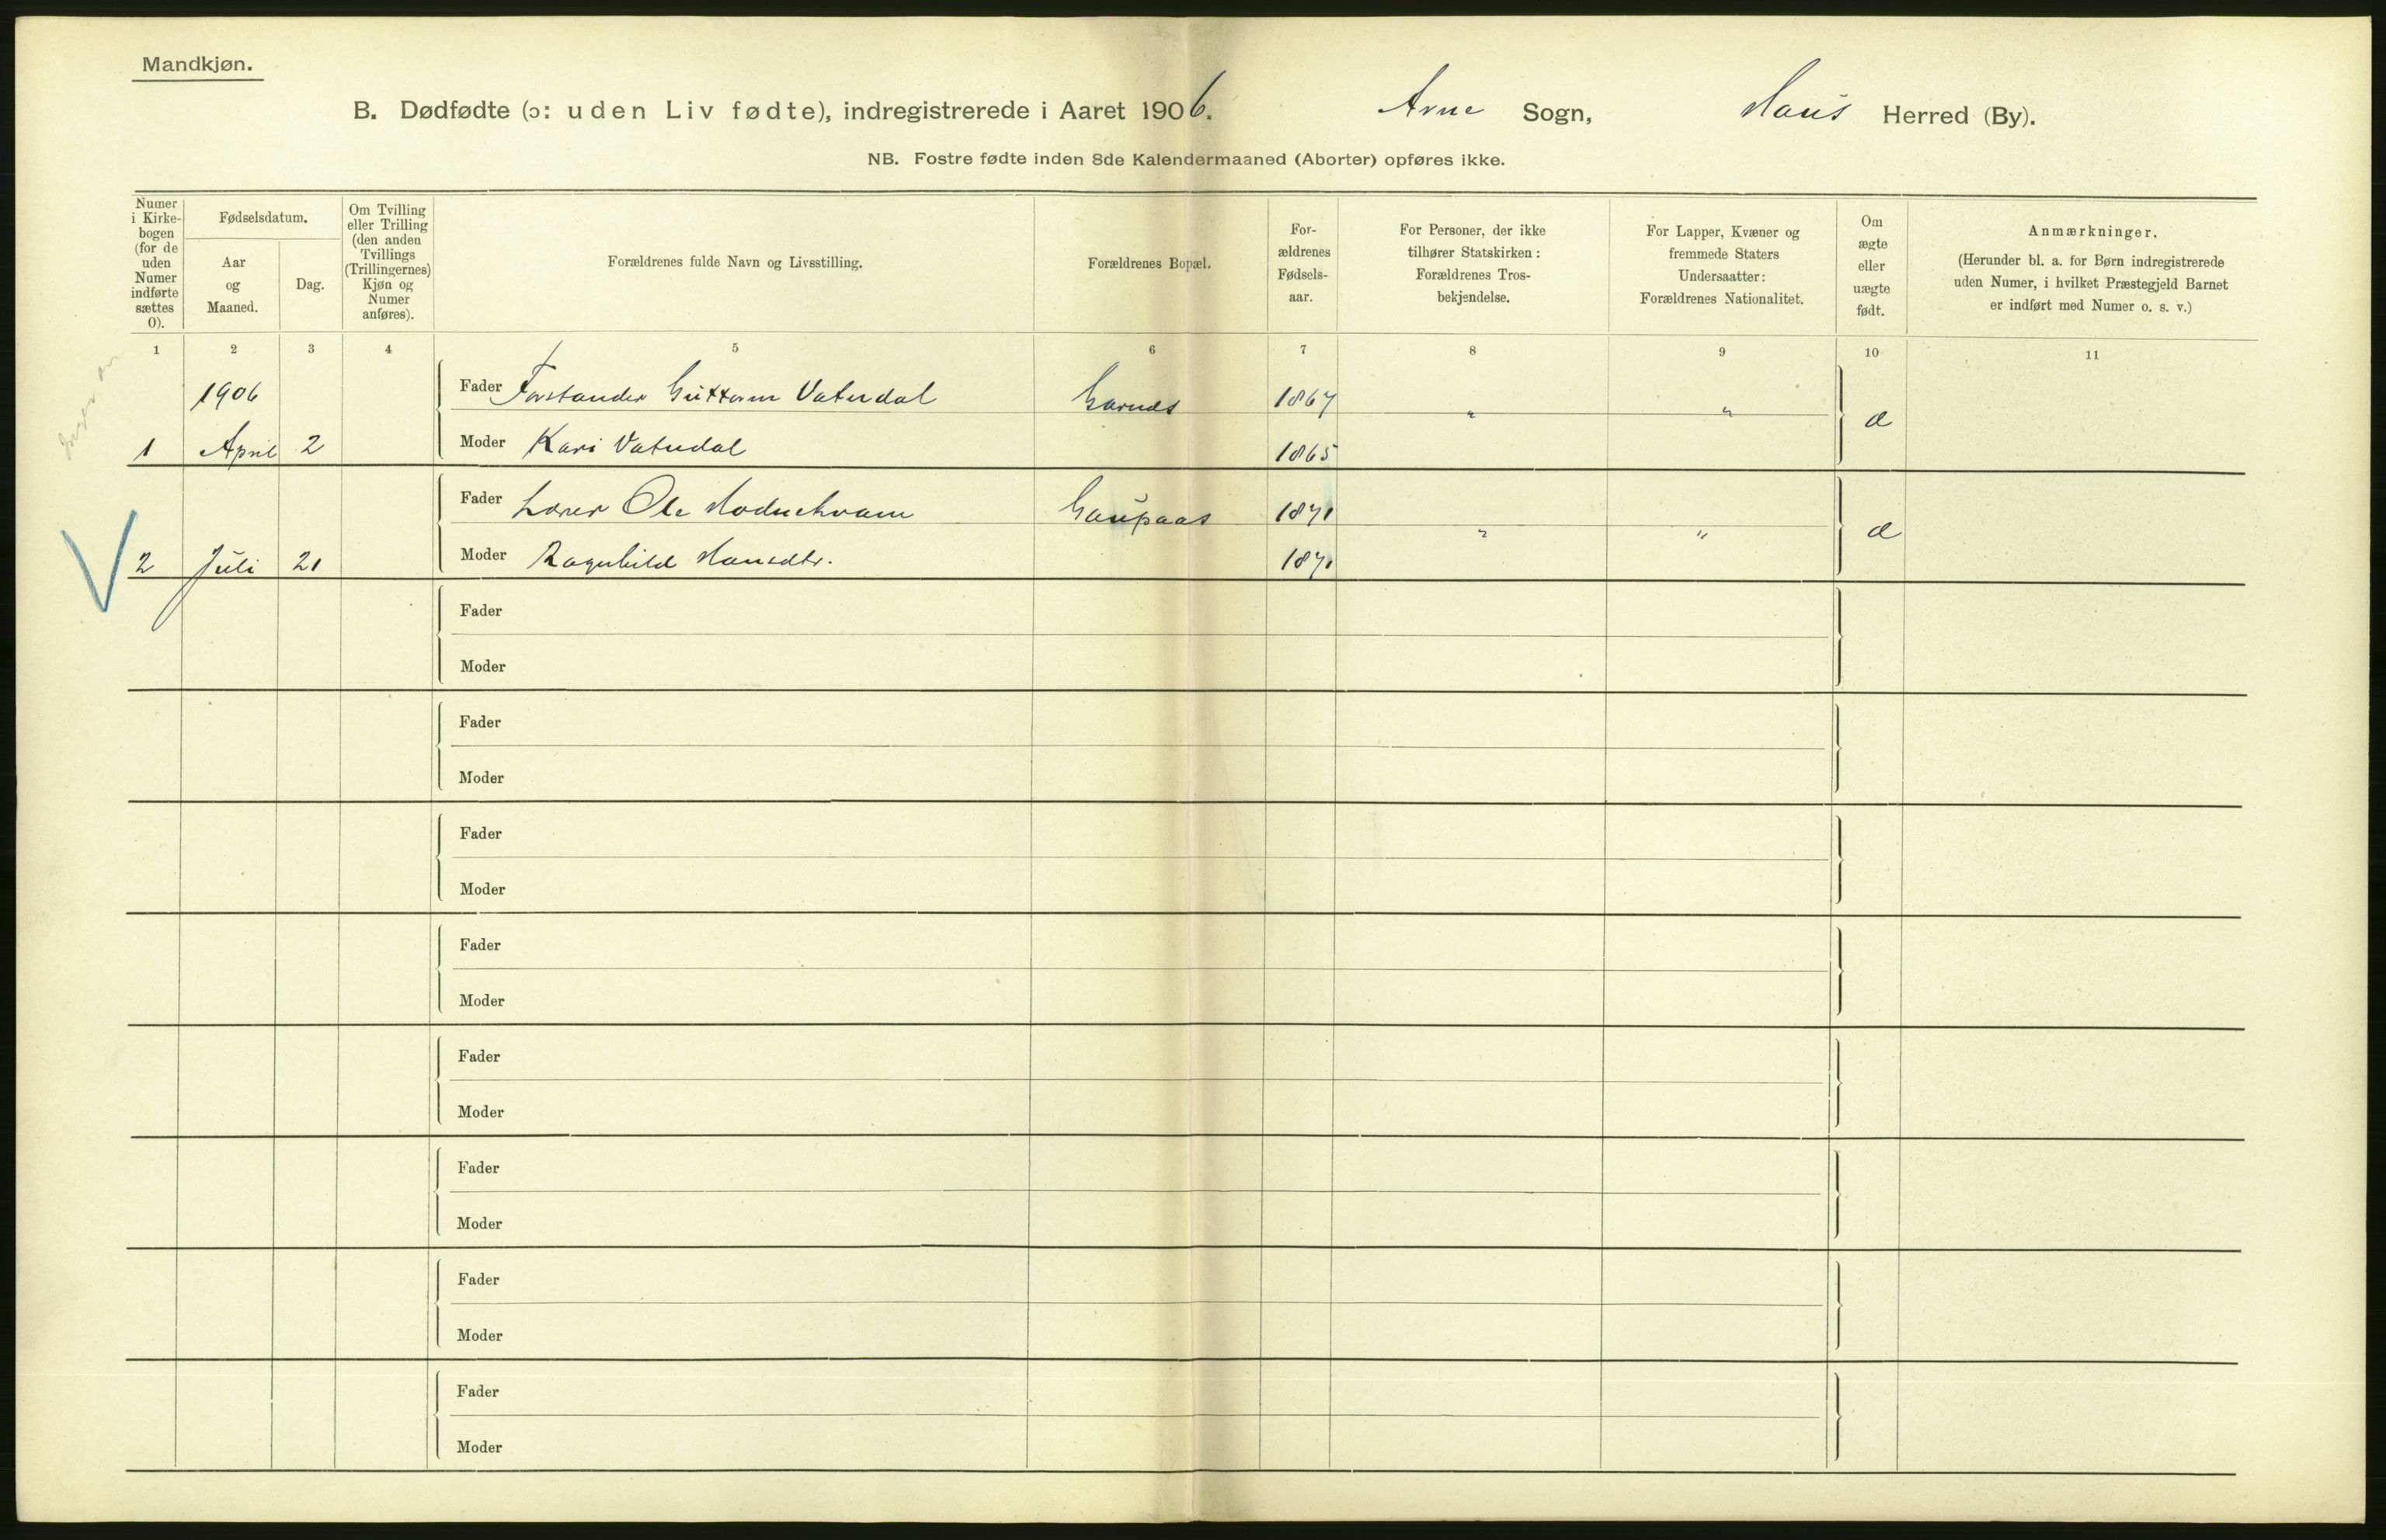 Mandkjøn.
B. Dødfødte (ɔ: uden Liv fødte), indregistrerede i Aaret 1906. Arne Sogn, Haus Herred (By).
NB. Fostre fødte inden 8de Kalendermaaned (Aborter) opføres ikke.
Numer
i Kirke-
bogen
(for de
uden
Numer
indførte
sættes
0).
Fødselsdatum.
Aar
og
Maaned.
Dag.
Om Tvilling
eller Trilling
(den anden
Tvillings
(Trillingernes)
Kjøn og
Numer
anføres).
Forældrenes fulde Navn og Livsstilling.
Forældrenes Bopæl.
For-
ældrenes
Fødsels-
aar.
For Personer, der ikke
tilhører Statskirken:
Forældrenes Tros-
bekjendelse.
For Lapper, Kvæner og
fremmede Staters
Undersaatter:
Forældrenes Nationalitet.
Om
ægte
eller
uægte
født.
Anmærkninger.
(Herunder bl. a. for Børn indregistrerede
uden Numer, i hvilket Præstegjeld Barnet
er indført med Numer o. s. v.)
1 2 3 4 5 6 7 8 9 10 11
1906 Fader Forstander Guttorm Vatndal Garnes 1867 " "
1 April 2 Moder Kari Vatndal 1865
Fader Lærer Ole Gaupaas 1871 " "
2 Juli 21 Moder Ragnhild Hansdtr. 1871
Fader
Moder
Fader
Moder
Fader
Moder
Fader
Moder
Fader
Moder
Fader
Moder
Fader
Moder
Fader
Moder